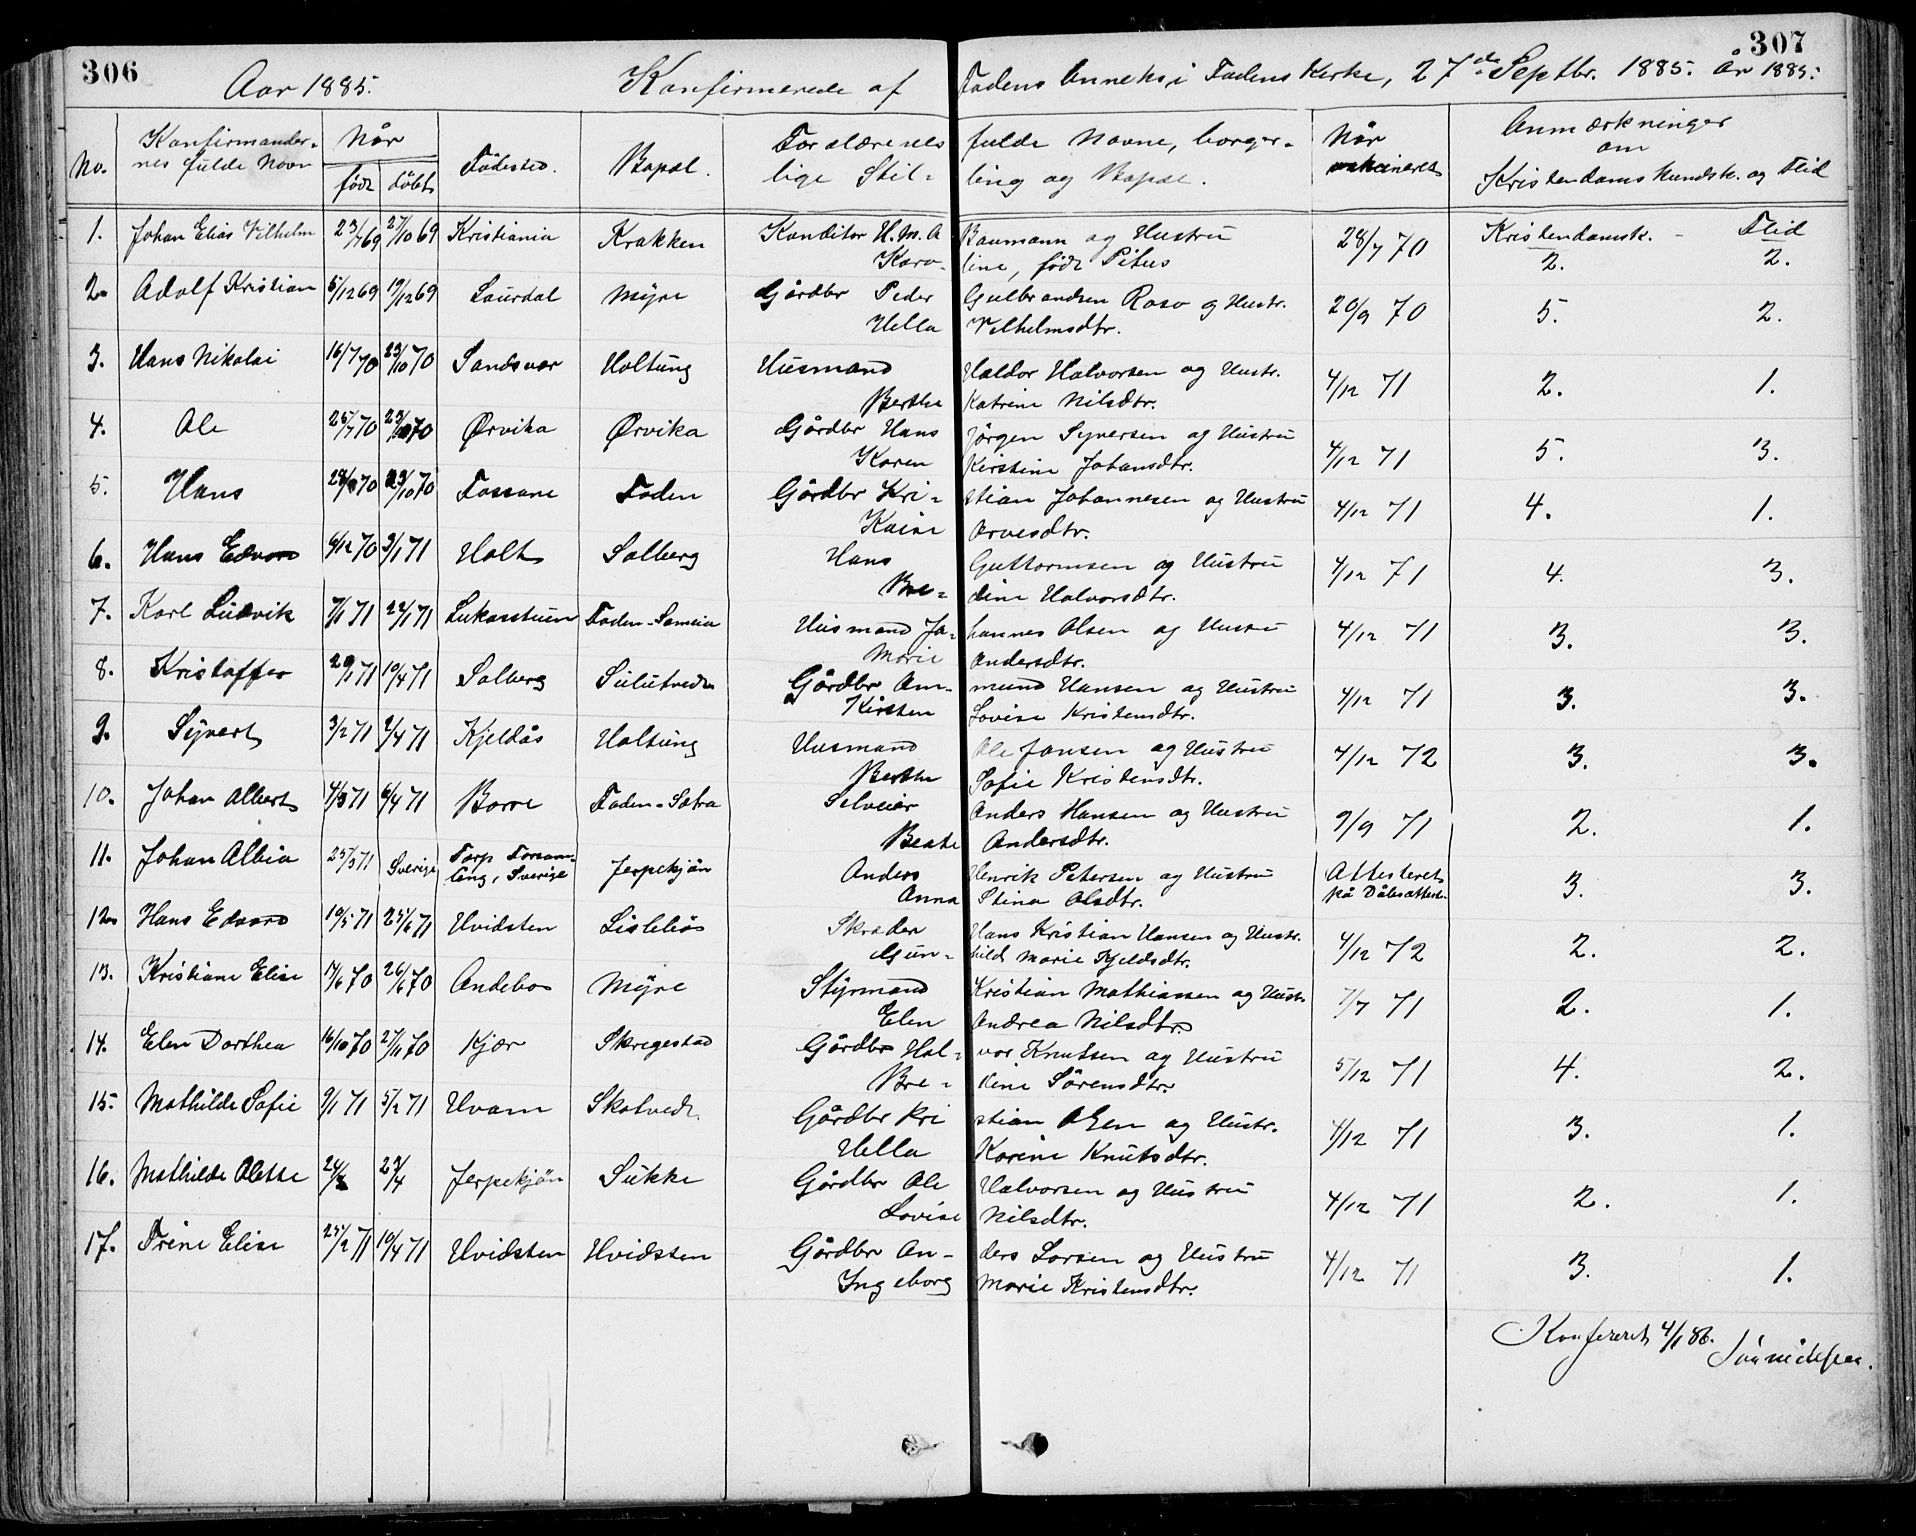 306
307
Aar 1885. Konfirmerede af Fodens Anneks i Fodens Kirke, 27de Septbr. 1885. År 1885.
No. Konfirmander- Når Fødested. Bopæl. Forældrenes fulde Navne, borger- Når Anmærkninger
nes fulde Navn født døbt lige Stil- ling og Bopæl. vakcineret om
Kristendomskundsk. og Flid
1. Johan Elias Vilhelm 23/7 69 27/10 69 Kristiania Krakken Konditor H. M. A Baumann og Hustru 28/7 70 Kristendomsk. - Flid
Karo- line, født Pihus 2. 2.
2. Adolf Kristian 5/12 69 19/12 69 Laurdal Myre Gårdbr Peder Gulbrandsen Roso og Hustr. 20/9 70 5. 2.
Hella Vilhelmsdtr.
3. Hans Nikolai 16/7 70 23/10 70 Sandsvær Holtung Husmand Haldor Halvorsen og Hustr. 4/12 71 2. 1.
Berthe Katrine Nilsdtr.
4. Ole 25/7 70 23/10 70 Ørvika Ørvika Gårdbr Hans Jørgen Syversen og Hustru 4/12 71 5. 3.
Karen Kirstine Johansdtr.
5. Hans 70 23/10 70 Fossane Foden Gårdbr Kri- stian Johannesen og Hustru 4/12 71 4. 1.
Kaise Arvesdtr.
6. Hans Edvard 6/12 70 3/1 71 Holt Solberg Hans Guttormsen og Hustru 4/12 71 4. 3.
Bre- dine Halvorsdtr.
7. Karl Ludvik 7/1 71 22/1 71 Lukasstuen Foden-Sameia Husmand Jo- hannes Olsen og Hustru 4/12 71 3. 3.
Marie Andersdtr.
8. Kristoffer 29/1 71 10/4 71 Solberg Sulutvedt Gårdbr Am- mund Hansen og Hustru 4/12 71 3. 3.
Kirsten Lovise Kristensdtr.
9. Syvert 3/2 71 2/4 71 Kjeldås Holtung Husmand Ole Jansen og Hustru 4/12 72 3. 3.
Berthe Sofie Kristensdtr.
10. Johan Albert 4/3 71 6/4 71 Borre Foden-Sætra Selveier Anders Hansen og Hustru 9/9 71 2. 1.
Beate Andersdtr.
11. Johan Albin 25/3 71 Sverige Torp Forsam- Jerpekjøn Anders Henrik Petersen og Hustru Attesteret 3. 3.
ling, Sverige Anna Stina Olsdtr. på Dåbsattesten
12. Hans Edvard 10/5 71 25/6 71 Hvidsten Lisleliøs Skræder Hans Kristian Hansen og Hustr. 4/12 72 2. 2.
Gun- hild Marie Kjeldsdtr.
13. Kristiane Elise 14/6 70 26/6 70 Andebo Myre Styrmand Kristian Mathiassen og Hustr 7/7 71 2. 1.
Elen Andrea Nilsdtr.
14. Elen Dorthea 16/10 70 27/11 70 Kjær Skregestad Gårdbr Hal- vor Knutsen og Hustru 5/12 71 4. 2.
Bre- dine Sørensdtr.
15. Mathilde Sofie 9/1 71 5/2 71 Hvam Skotvedt. Gårdbr Kri stian Olsen og Hustr. 4/12 71 3. 1.
Hella Karine Knutsdtr.
16. Mathilde Olette 24/2 23/4 Jerpekjøn Sukke Gårdbr Ole Halvorsen og Hustru 4/12 71 2. 1.
Lovise Nilsdtr.
17. Trine Elise 25/2 71 10/4 71 Hvidsten Hvidsten Gårdbr An- ders Larsen og Hustru 4/12 71 3. 1.
Ingeborg Marie Kristensdtr.
Konfereret 4/1 86.